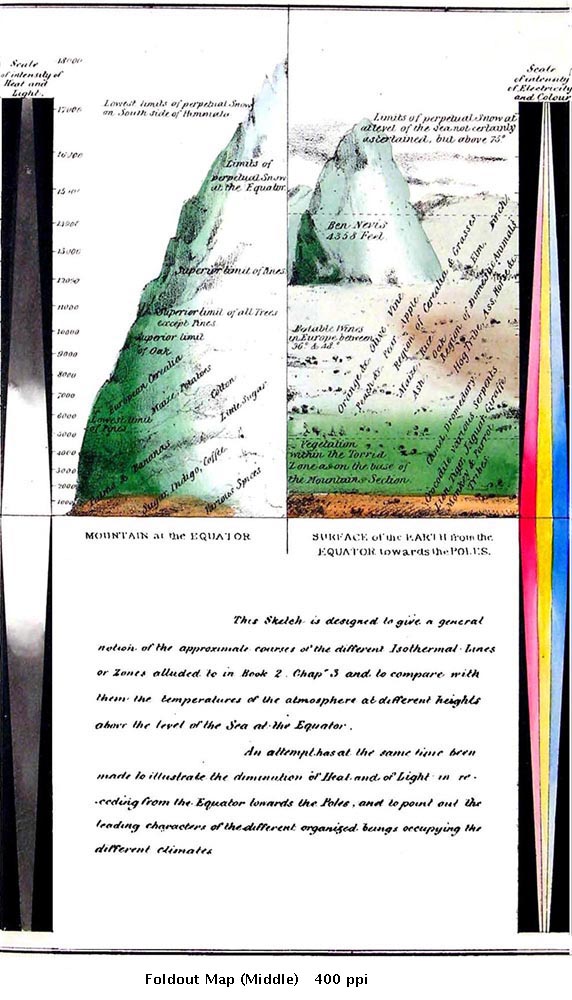 Scale
of intensity of
Heat and
Light.
18000
17000
16000
15000
14000
13000
12000
11000
10000
9000
8000
7000
6000
5000
4000
3000
2000
1000
Lowest limits of perpetual Snow
on South side of Himmala
Limits of
perpetual Snow
at the Equator
Superior limit of Pines
Superior limit of all Trees
except Pines
Superior limit
of Oak
European Cerealia
Maize Potatoes
Cotton
Lowest limit
of Pines
Little Sugar
Bananas
Sugar, Indigo, Coffee
Various Spices
Limits of perpetual Snow at
a level of the sea not certainly
astertained, but above 75°
Ben Nevis
4358 Feet
Eatable Wines
in Europe between
36° & 48°
Orange &c Olive Vine
Peach & Pear Apple
Region of Cerealia & Grasses
Maize
Ash Oak Elm Birch
Region of Domestic Animals
Hog Tribe, Ass, Horse &c
Vegetation
within the Torrid
Zone as on the base of
the Mountains Section.
Camel, Dromedary
Crocodile, various serpents
Lion, Tiger, Jaguar, Giraffe
Monkey & Parrot
Tribes
Scale
of intensity
of Electricity
and Colour
MOUNTAIN at the EQUATOR
SURFACE of the EARTH from the
EQUATOR towards the POLES.
This Sketch is designed to give a general
notion of the approximate courses of the different Isothermal Lines
or Zones alluded to in Book 2. Chapr 3 and to compare with
them the temperatures of the atmosphere at different heights
above the level of the Sea at the Equator.
An attempt has at the same time been
made to illustrate the diminution of Heat and of Light in re-
-ceding from the Equator towards the Poles, and to point out the
leading characters of the different organized beings occupying the
different climates
Foldout Map (Middle) 400 ppi